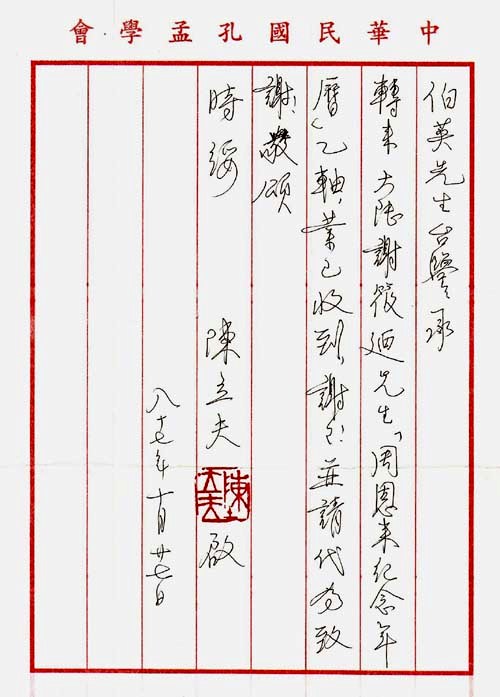 中華民國孔孟學會
伯英先生台鑒承
轉來大陸謝筱迺先生「周恩來紀念年
曆」乙軸,業已收到,謝之!並請代為致
謝!敬頌
時綏
陳立夫 啟
八十七年十月廿七日